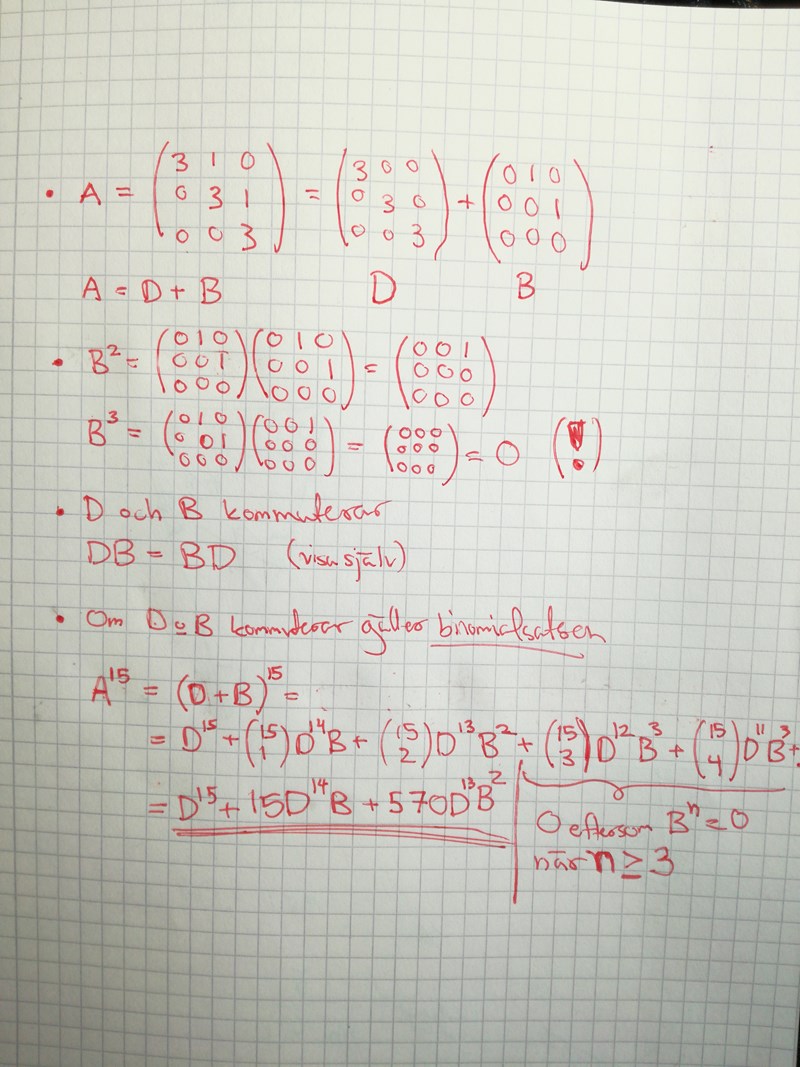 • A = (3 1 0; 0 3 1; 0 0 3) = (3 0 0; 0 3 0; 0 0 3) + (0 1 0; 0 0 1; 0 0 0)
A = D + B D B
• B² = (0 1 0; 0 0 1; 0 0 0)(0 1 0; 0 0 1; 0 0 0) = (0 0 1; 0 0 0; 0 0 0)
B³ = (0 1 0; 0 0 1; 0 0 0)(0 0 1; 0 0 0; 0 0 0) = (0 0 0; 0 0 0; 0 0 0) = 0 (!)
• D och B kommuterar
DB = BD (visa själv)
• Om D o B kommuterar gäller binomialsatsen
A¹⁵ = (D + B)¹⁵ =
= D¹⁵ + (15 1)D¹⁴B + (15 2)D¹³B² + (15 3)D¹²B³ + (15 4)D¹¹B³ +
= D¹⁵ + 15D¹⁴B + 570D¹³B²
0 eftersom Bⁿ = 0
när n ≥ 3